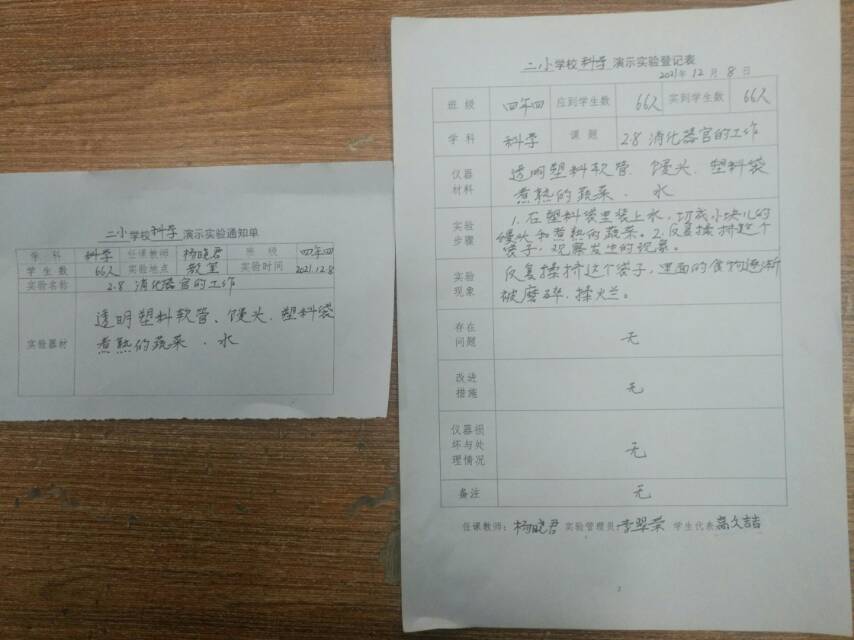 二小学校科学演示实验通知单
学科 科学 任课教师 杨晓君 班级 四年四
学生数 66人 实验地点 教室 实验时间 2021.12.8
实验名称 2.8 消化器官的工作
实验器材 透明塑料软管、馒头、塑料袋
煮熟的蔬菜、水
二小学校科学演示实验登记表
2021年12月8日
班级 四年四 应到学生数 66人 实到学生数 66人
学科 科学 课题 2.8 消化器官的工作
仪器材料 透明塑料软管、馒头、塑料袋
煮熟的蔬菜、水
实验步骤 1.在塑料袋里装上水,切成小块儿的
馒头和煮熟的蔬菜。2.反复揉挤这个
袋子,观察发生的现象。
实验现象 反复揉挤这个袋子,里面的食物逐渐
被磨碎、揉烂。
存在问题 无
改进措施 无
仪器损坏与处理情况 无
备注 无
任课教师:杨晓君 实验管理员 李翠荣 学生代表 高久喆
2